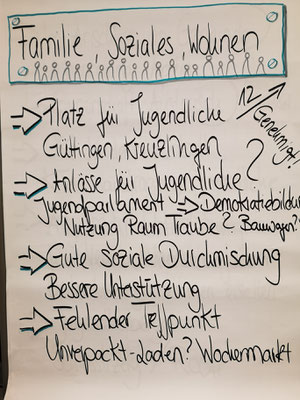 Familie, Soziales, Wohnen
→ Platz für Jugendliche
Güttingen, Kreuzlingen
12/
Genehmigt!
→ Anlässe für Jugendliche ?
Jugendparlament → Demokratiebildu
Nutzung Raum Traube? Bauwagen?
→ Gute soziale Durchmischung
Bessere Unterstützung
→ Fehlender Treffpunkt
Unverpackt-Laden? Wochenmarkt